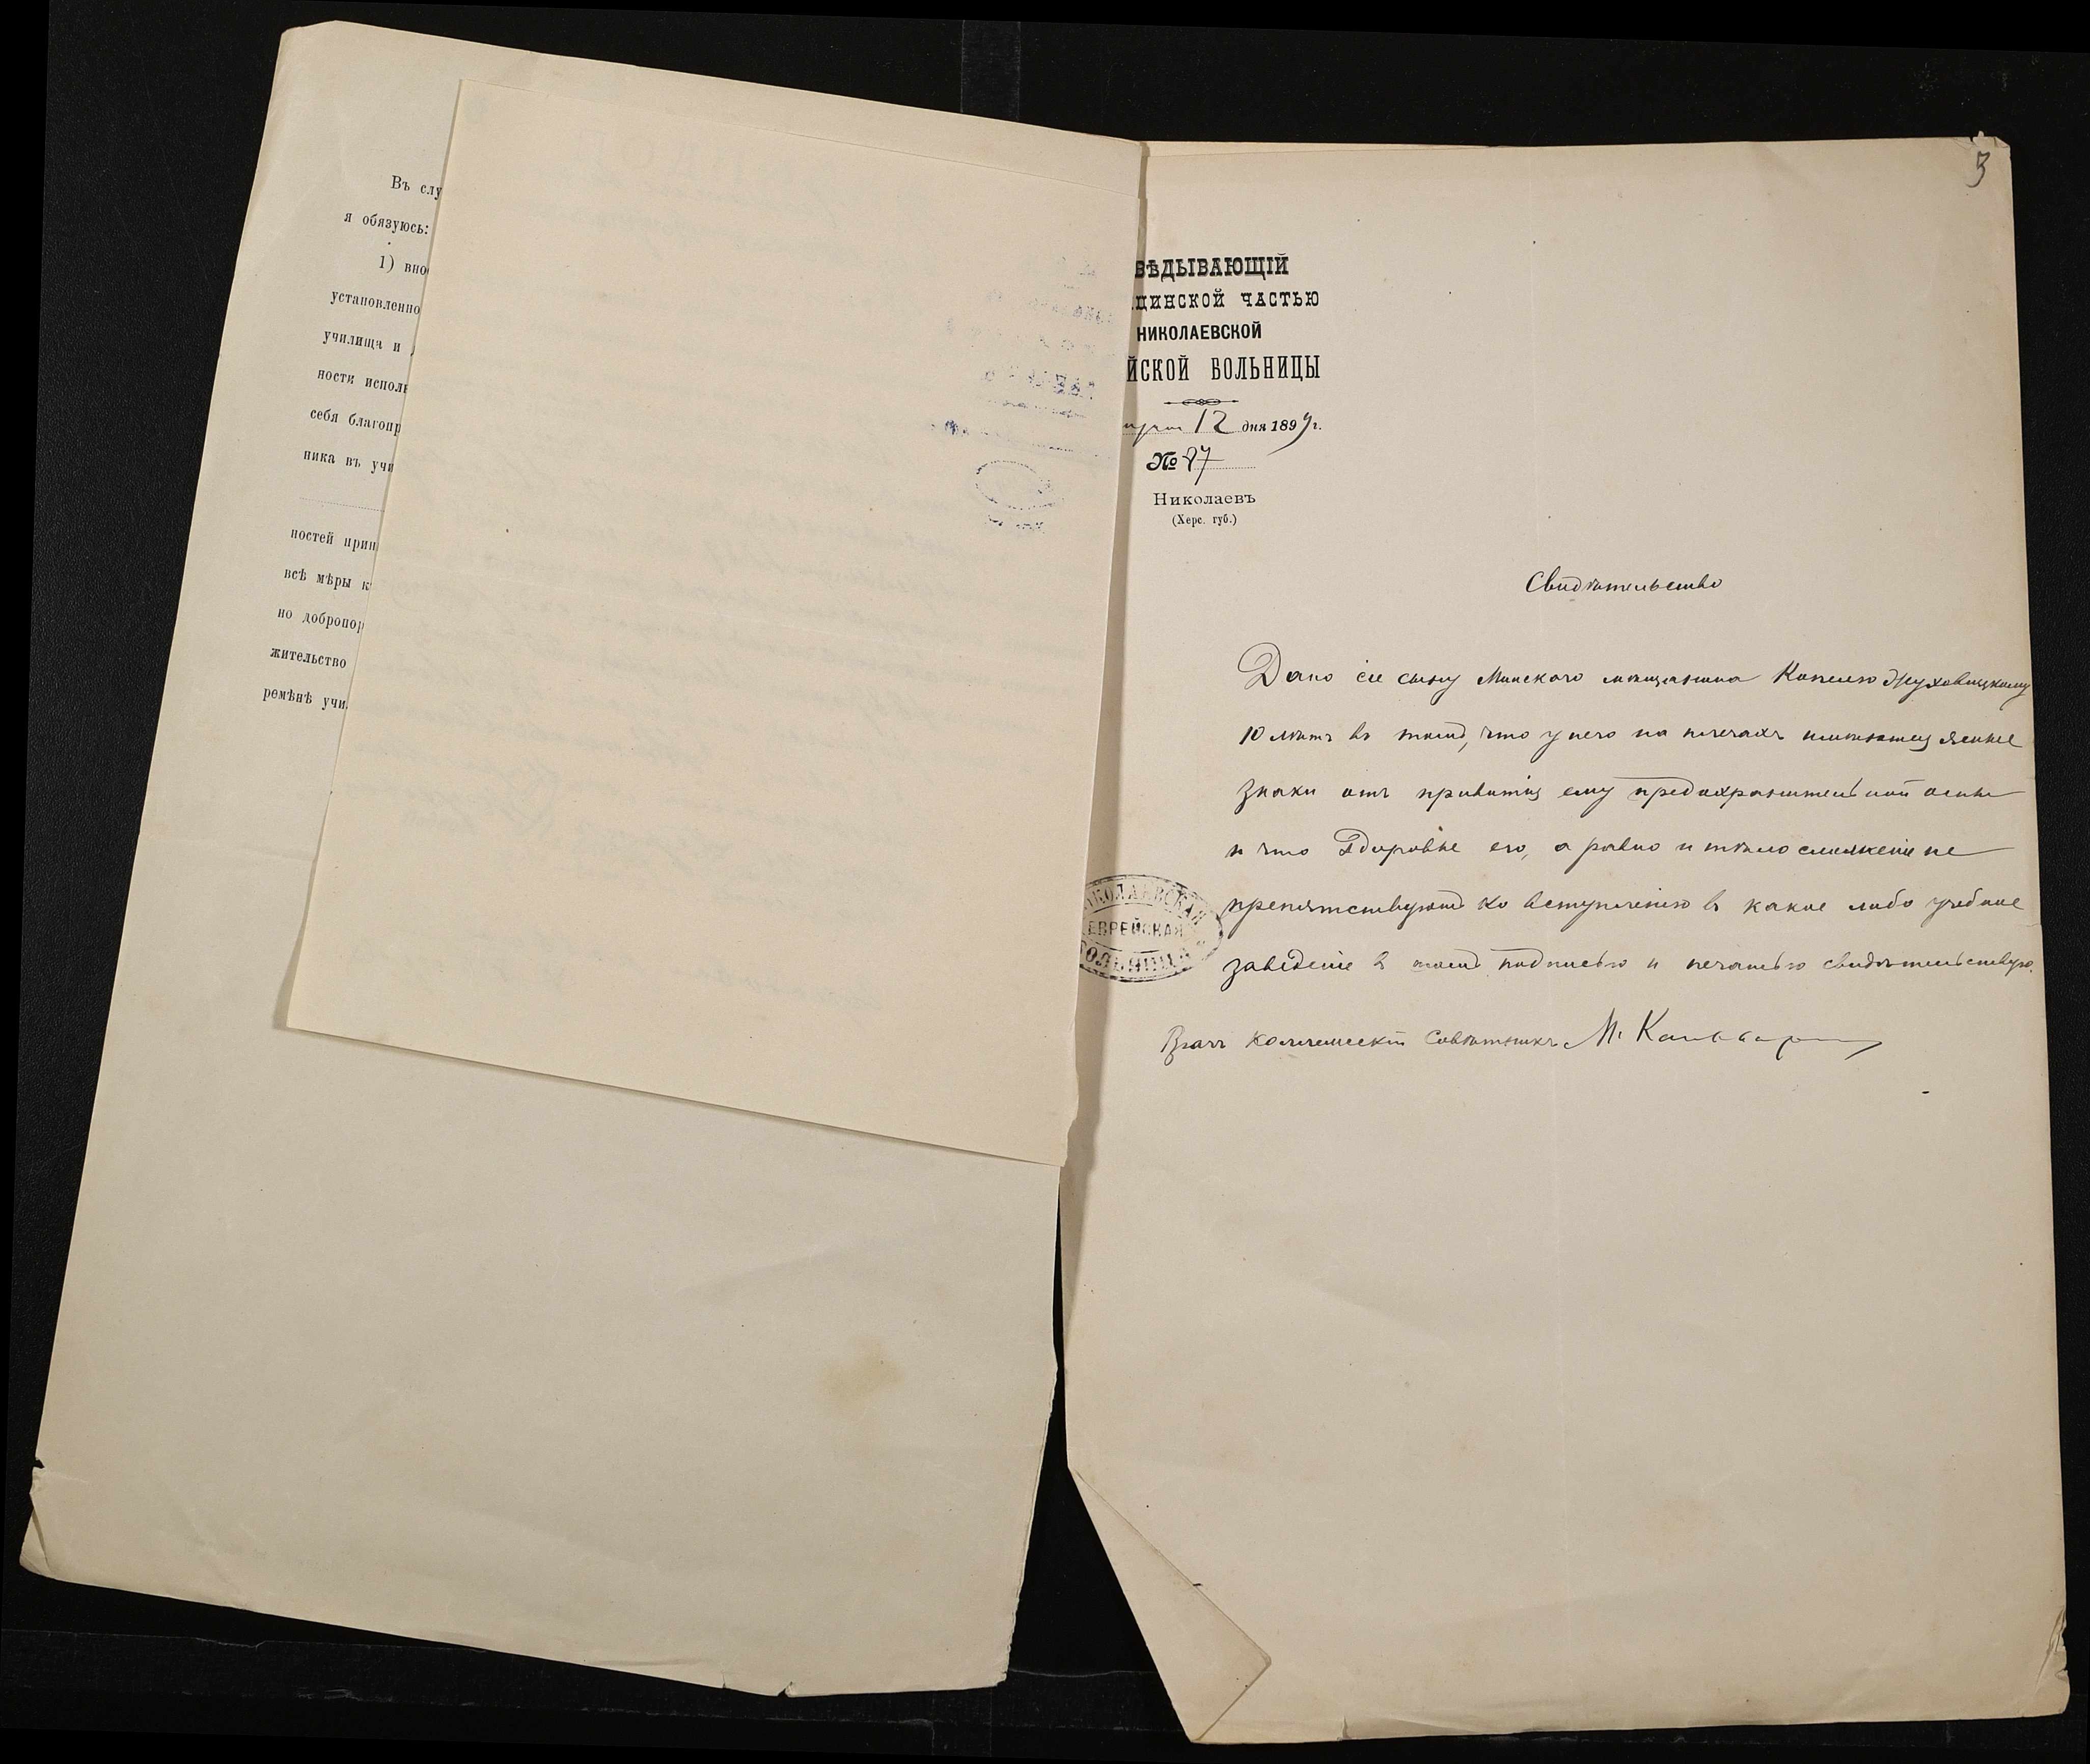 Въ слу
я обязуюсь:
1) вно
установленно
училища и
ности исполн
себя благопр
ника въ учи
ностей прин
всѣ мѣры к
но добропор
жительство
ремѣнѣ учи
3
ВѢДЫВАЮЩІЙ
ЦИНСКОЙ ЧАСТЬЮ
НИКОЛАЕВСКОЙ
ЙСКОЙ БОЛЬНИЦЫ
12 дня 1899 г.
№ 87
Николаевъ
(Херс. губ.)
Свидѣтельство
Дано сіе сыну Минскаго мѣщанина Копелю Духовицкому
10 лѣтъ въ томъ, что у него на плечахъ имѣются ясные
знаки отъ привитія ему предохранительной оспы
и что Здоровье его, а равно и тѣлосложеніе не
препятствуютъ ко вступленію въ какое либо учебное
заведеніе въ томъ подписью и печатью свидѣтельствую.
НИКОЛАЕВСКАЯ
ЕВРЕЙСКАЯ
БОЛЬНИЦА
Врачъ Коллежскій Совѣтникъ М.